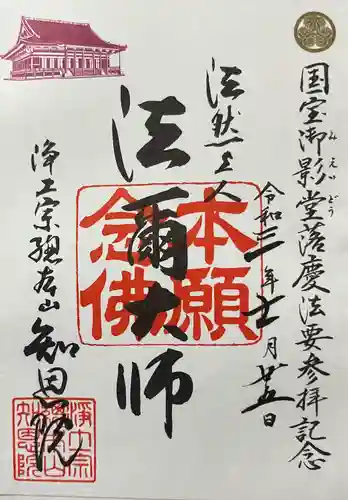 国宝御影堂落慶法要参拝記念
みえいどう
令和二年十一月廿五日
法然上人
法爾大師
本願
念佛
浄土宗總本山
知恩院
浄土宗
總本山
知恩院